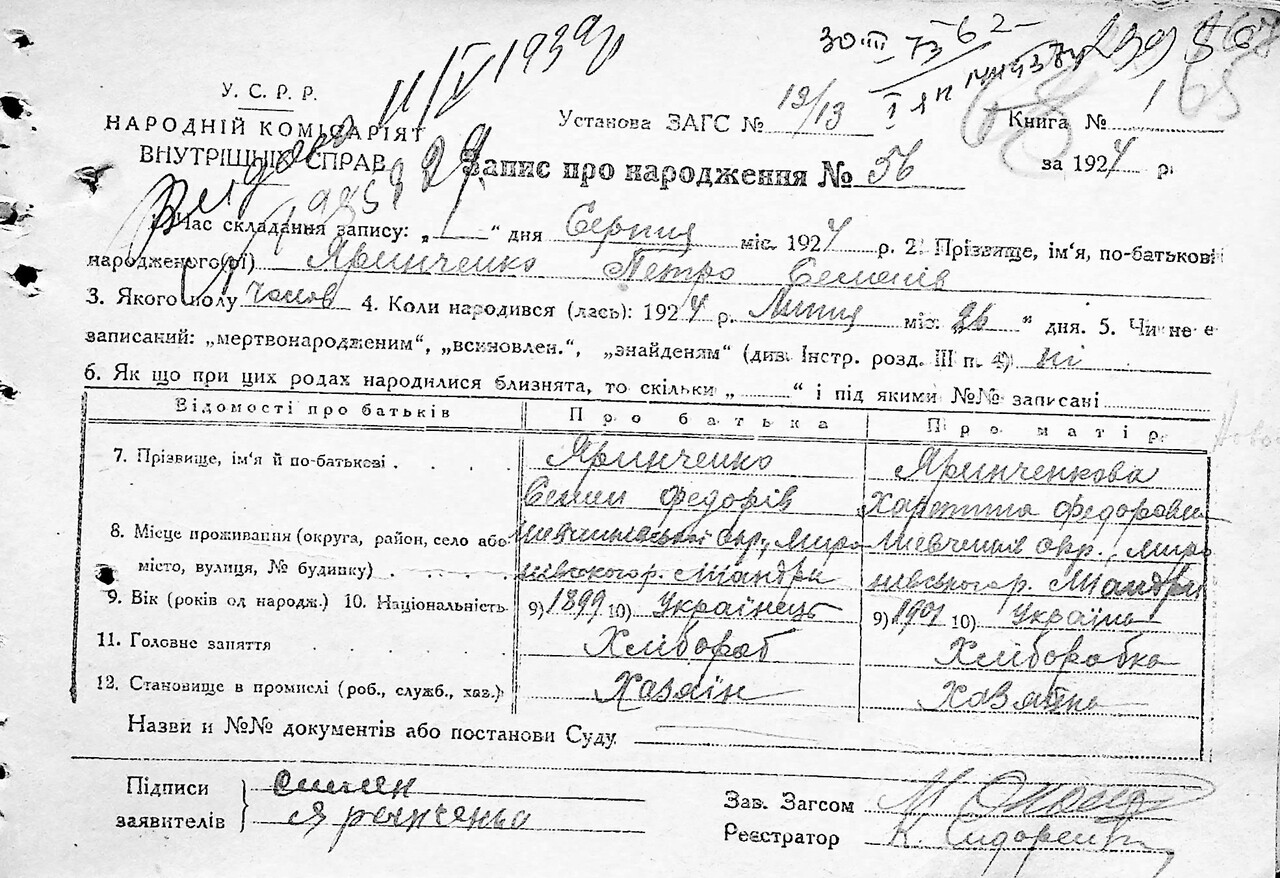 11/V 1939р
30 III 73 62-
У. С. Р. Р.
НАРОДНІЙ КОМІСАРІЯТ
ВНУТРІШНІХ СПРАВ
Установа ЗАГС № 12/13
Книга № 1
65
Запис про народження № 56
за 1924 р.
1. Час складання запису: „ “ дня Серпня міс. 1924 р. 2. Прізвище, ім‘я, по-батькові
народженого(рі) Яринченко Петро Семенів
3. Якого полу чолов 4. Коли народився (лась): 1924 р. Липця міс. 26 “ дня. 5. Чи не е
записаний: „мертвонародженим“, „всиновлен.“, „знайденям“ (див. Інстр. розд. III п. 4) ні
6. Як що при цих родах народилися близнята, то скільки „ “ і під якими №№ записані
Відомості про батьків Про батька Про матір
7. Прізвище, ім‘я й по-батькові Яринченко Яринченкова
Семен Федорів Харитина Федоровна
8. Місце проживання (округа, район, село або Шевченківської окр., Миро Шевченків окр., Миро
місто, вулиця, № будинку) нівського р. Шандри нівського р. Шандри
9. Вік (років од народж.) 10. Національність 9) 1899 10) Українець 9) 1901 10) Українка
11. Головне заняття Хлібороб Хліборобка
12. Становище в промислі (роб., служб., хаз.) Хазяїн Хазяйка
Назви и №№ документів або постанови Суду
Підписи
заявителів
семен
Яринченко
Зав. Загсом
Реєстратор К. Сидоренко